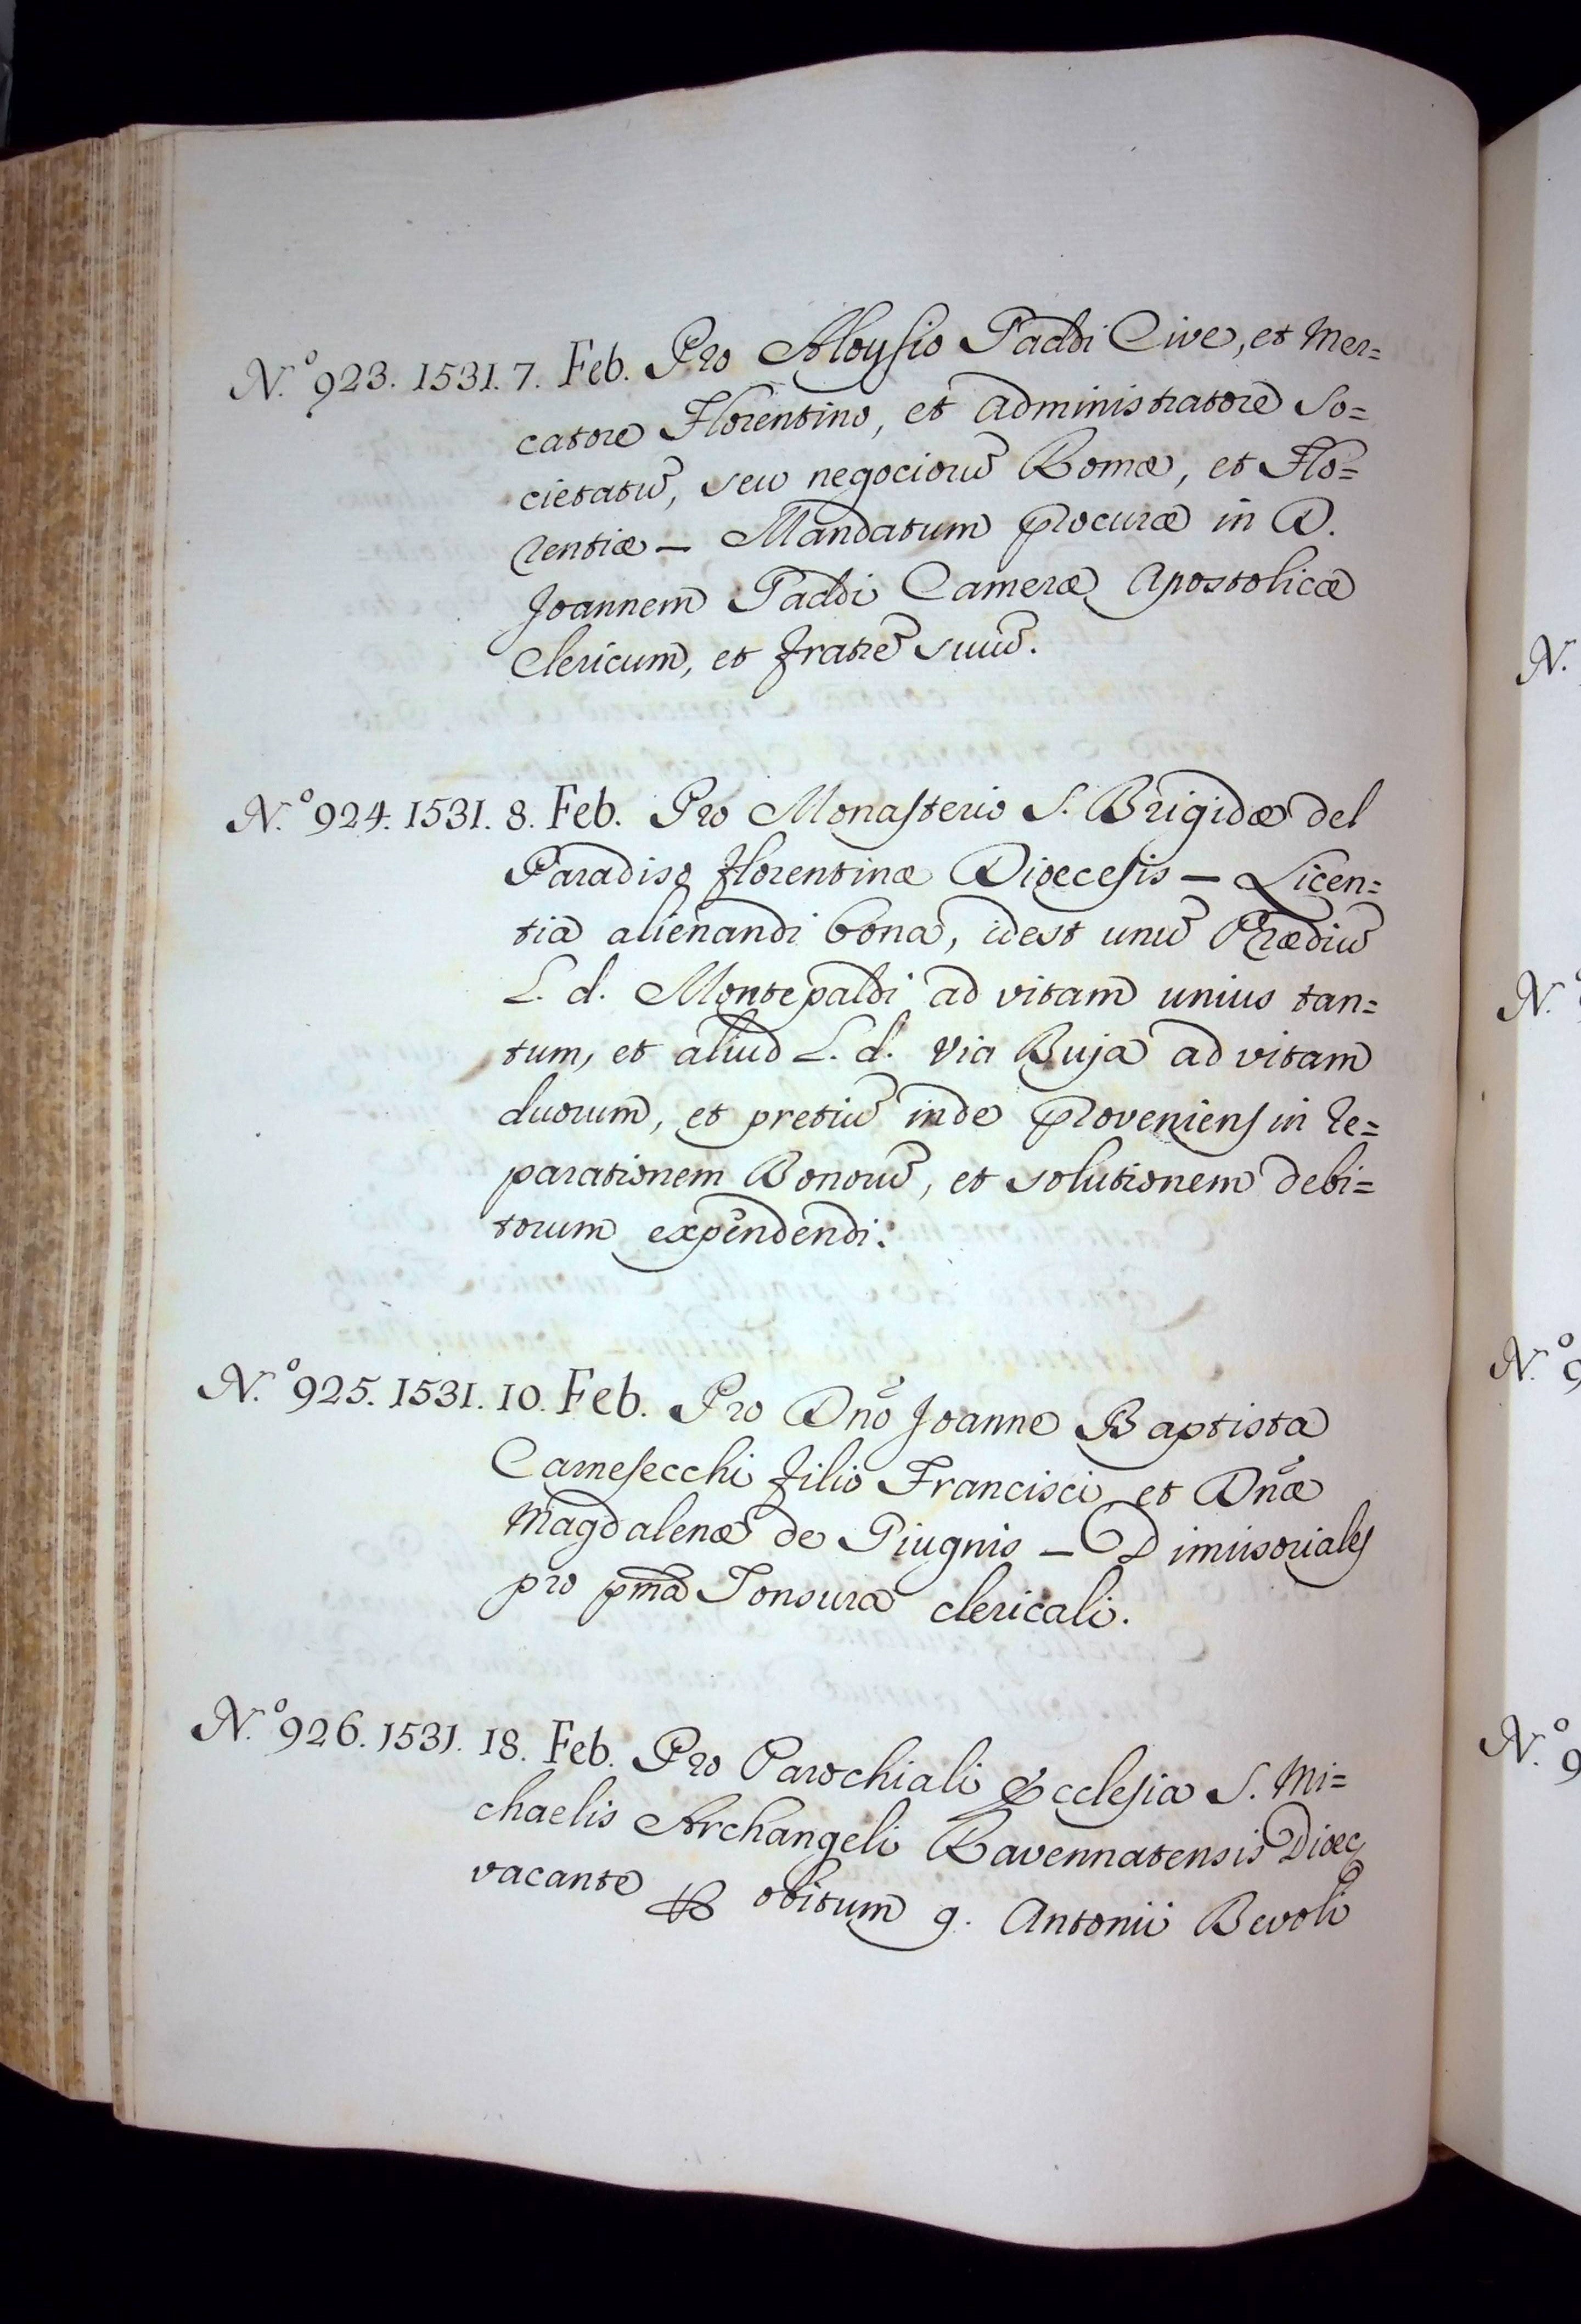 N.º 923. 1531. 7. Feb. Pro Aloysio Taddi Cive, et Mer=
catore Florentino, et administratore So=
cietatũ, seu negociorũ Romæ, et Flo=
rentiæ — Mandatum procuræ in D.
Joannem Taddi Cameræ Apostolicæ
Clericum, et fratrẽ suũ.
N.º 924. 1531. 8. Feb. Pro Monasterio S. Brigidæ del
Paradiso florentinæ Diœcesis — Licen=
tia alienandi bona, idest unũ Prædiũ
L. d. Montepaldi ad vitam unius tan=
tum, et aliud L. d. Via Buja ad vitam
duorum, et pretiũ inde proveniens in re=
parationem Bonorũ, et solutionem debi=
torum expendendi.
N.º 925. 1531. 10. Feb. Pro Dnõ Joanne Baptista
Carnesecchi filio Francisci et Dnæ
Magdalenæ de Piugnis — Dimiisoriales
pro pma Tonsura clericali.
N.º 926. 1531. 18. Feb. Pro Parochiali Ecclesia S. Mi=
chaelis Archangeli Ravennatensis Diœc
vacante obitum q. Antonii Bevoli
N.
N.º
N.º 9
N.º 9